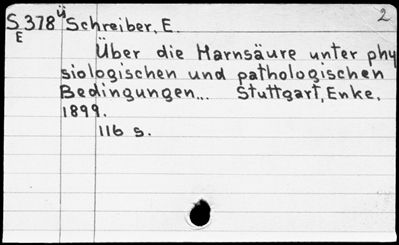 2
S.378 ü Schreiber, E.
E
Über die Harnsäure unter phy
siologischen und pathologischen
Bedingungen... Stuttgart, Enke,
1899.
116 s.